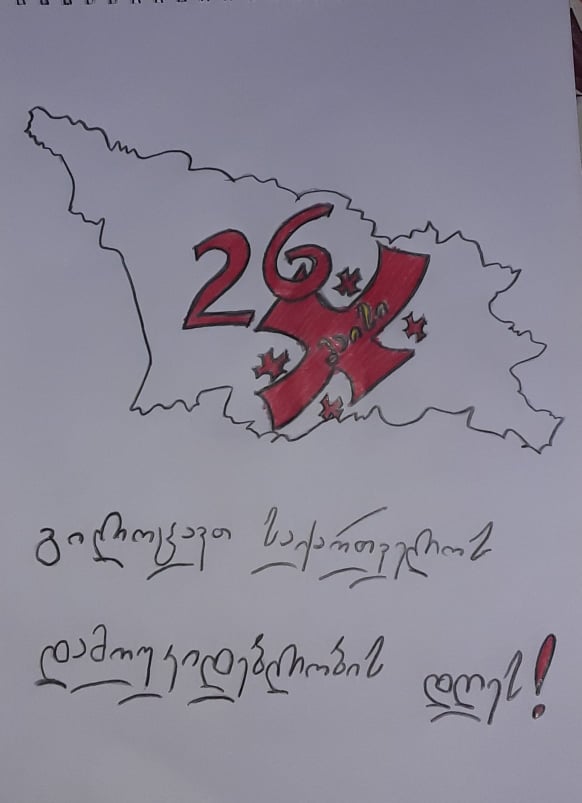 26
მაისი
გილოცავთ საქართველოს
დამოუკიდებლობის დღეს!